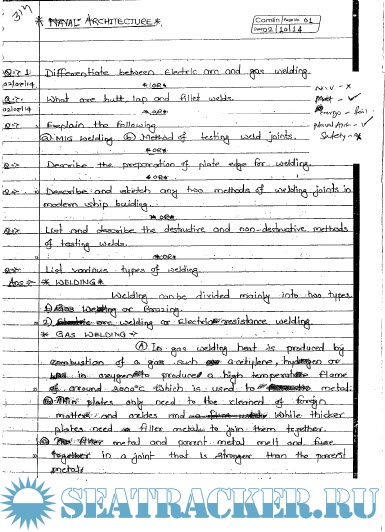 3/7
* NAVAL ARCHITECTURE *
Camlin Page No. 01
Date 02/10/14
Q.→ 1 Differentiate between Electric arc and gas welding.
02/07/14 * OR *
Q.→ What are butt, lap and fillet welds.
02/01/14 * OR *
Q.→ Explain the following
(a) MIG Welding (b) Method of testing weld joints.
* OR *
Q.→ Describe the preparation of plate edge for welding.
* OR *
Q.→ Describe and sketch any two methods of welding joints in
modern ship building.
* OR *
Q.→ List and describe the destructive and non-destructive methods
of testing welds.
* OR *
Q.→ List various types of welding.
Ans.→ * WELDING *
Welding can be divided mainly into two types
1) Gas Welding or Brazing.
2) arc welding or Electric resistance welding.
* GAS WELDING →
In gas welding heat is produced by
combustion of a gas such acetylene, hydrogen or
in oxygen to produce a high temperature flame
of around 3000°C which is used to metal.
Thin plates only need to be cleaned of foreign
matter and oxides and While thicker
plates need a filler metal to join them together.
The filler metal and parent metal melt and fuse
together in a joint that is stronger than the parent
metal.
SEATRACKER.RU